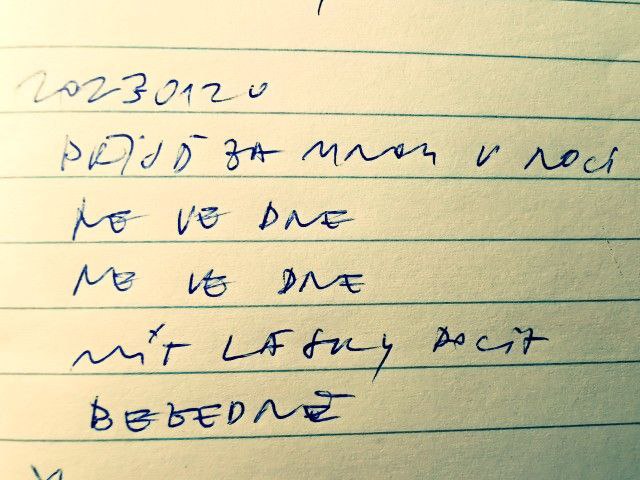 20230120
PŘIJĎ ZA MNOU V NOCI
NE VE DNE
NE VE DNE
MÍT LÁSKY POCIT
BEZEDNĚ